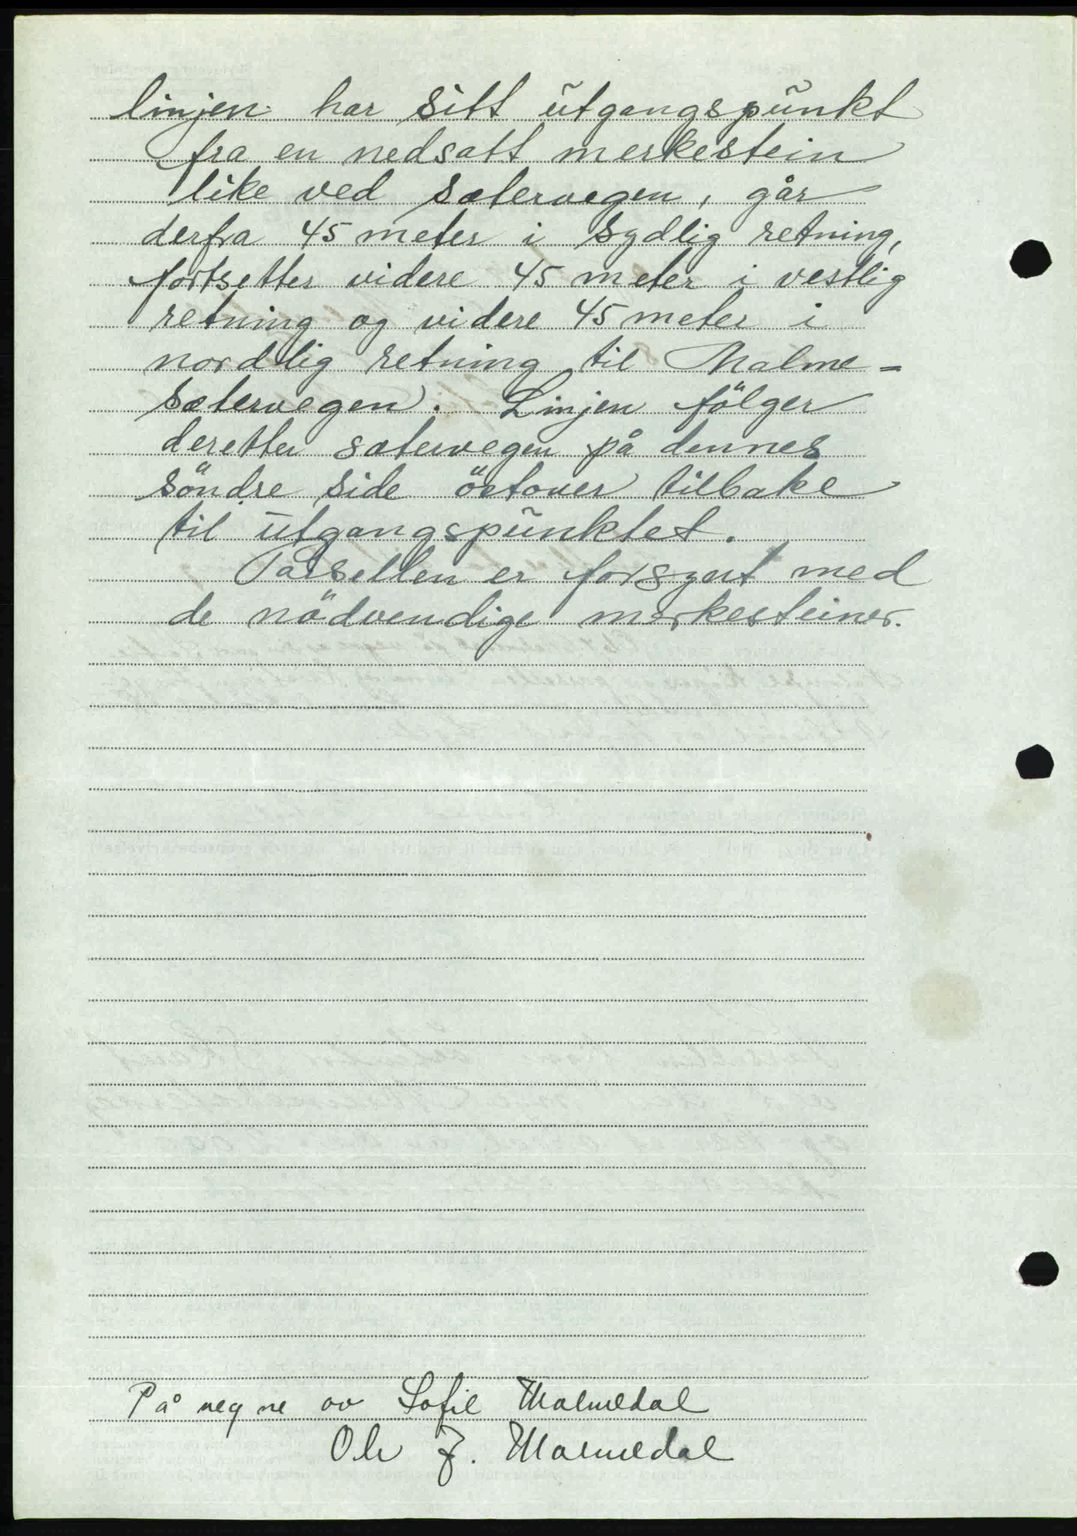 linjen har sitt utgangspunkt
fra en nedsatt merkestein
like ved sætervegen, går
derfra 45 meter i sydlig retning,
fortsetter videre 45 meter i vestlig
retning og videre 45 meter i
nordlig retning til Malme=
sætervegen. Linjen fölger
deretter sætervegen på dennes
söndre side östover tilbake
til utgangspunktet.
Parsellen er forsynt med
de nödvendige merkesteiner.
På vegne av Sofie Malmedal
Ole J. Malmedal